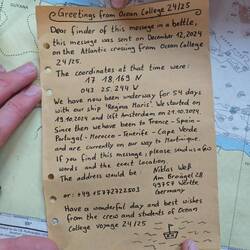 Greetings from Ocean College 24/25
Dear finder of this message in a bottle,
this message was sent on December, 12, 2024
on the Atlantic crossing from Ocean College
24/25.
The coordinates at that time were:
17° 18.169 N
043° 25.244 W
We have now been underway for 54 days
with our ship "Regina Maris". We started on
19.10.2024 and left Amsterdam on 21.10.2024.
Since then we have been to France - Spain -
Portugal - Morocco - Teneriffe - Cape Verde
and are currently on our way to Martinique
If you find this message, please send us a few
words and the exact location.
The address would be
Niklas
Am
49757 Werlte
Germany
or: +49 15772322503
Have a wonderful day and best wishes
from the crew and students of Ocean
College voyage 24/25